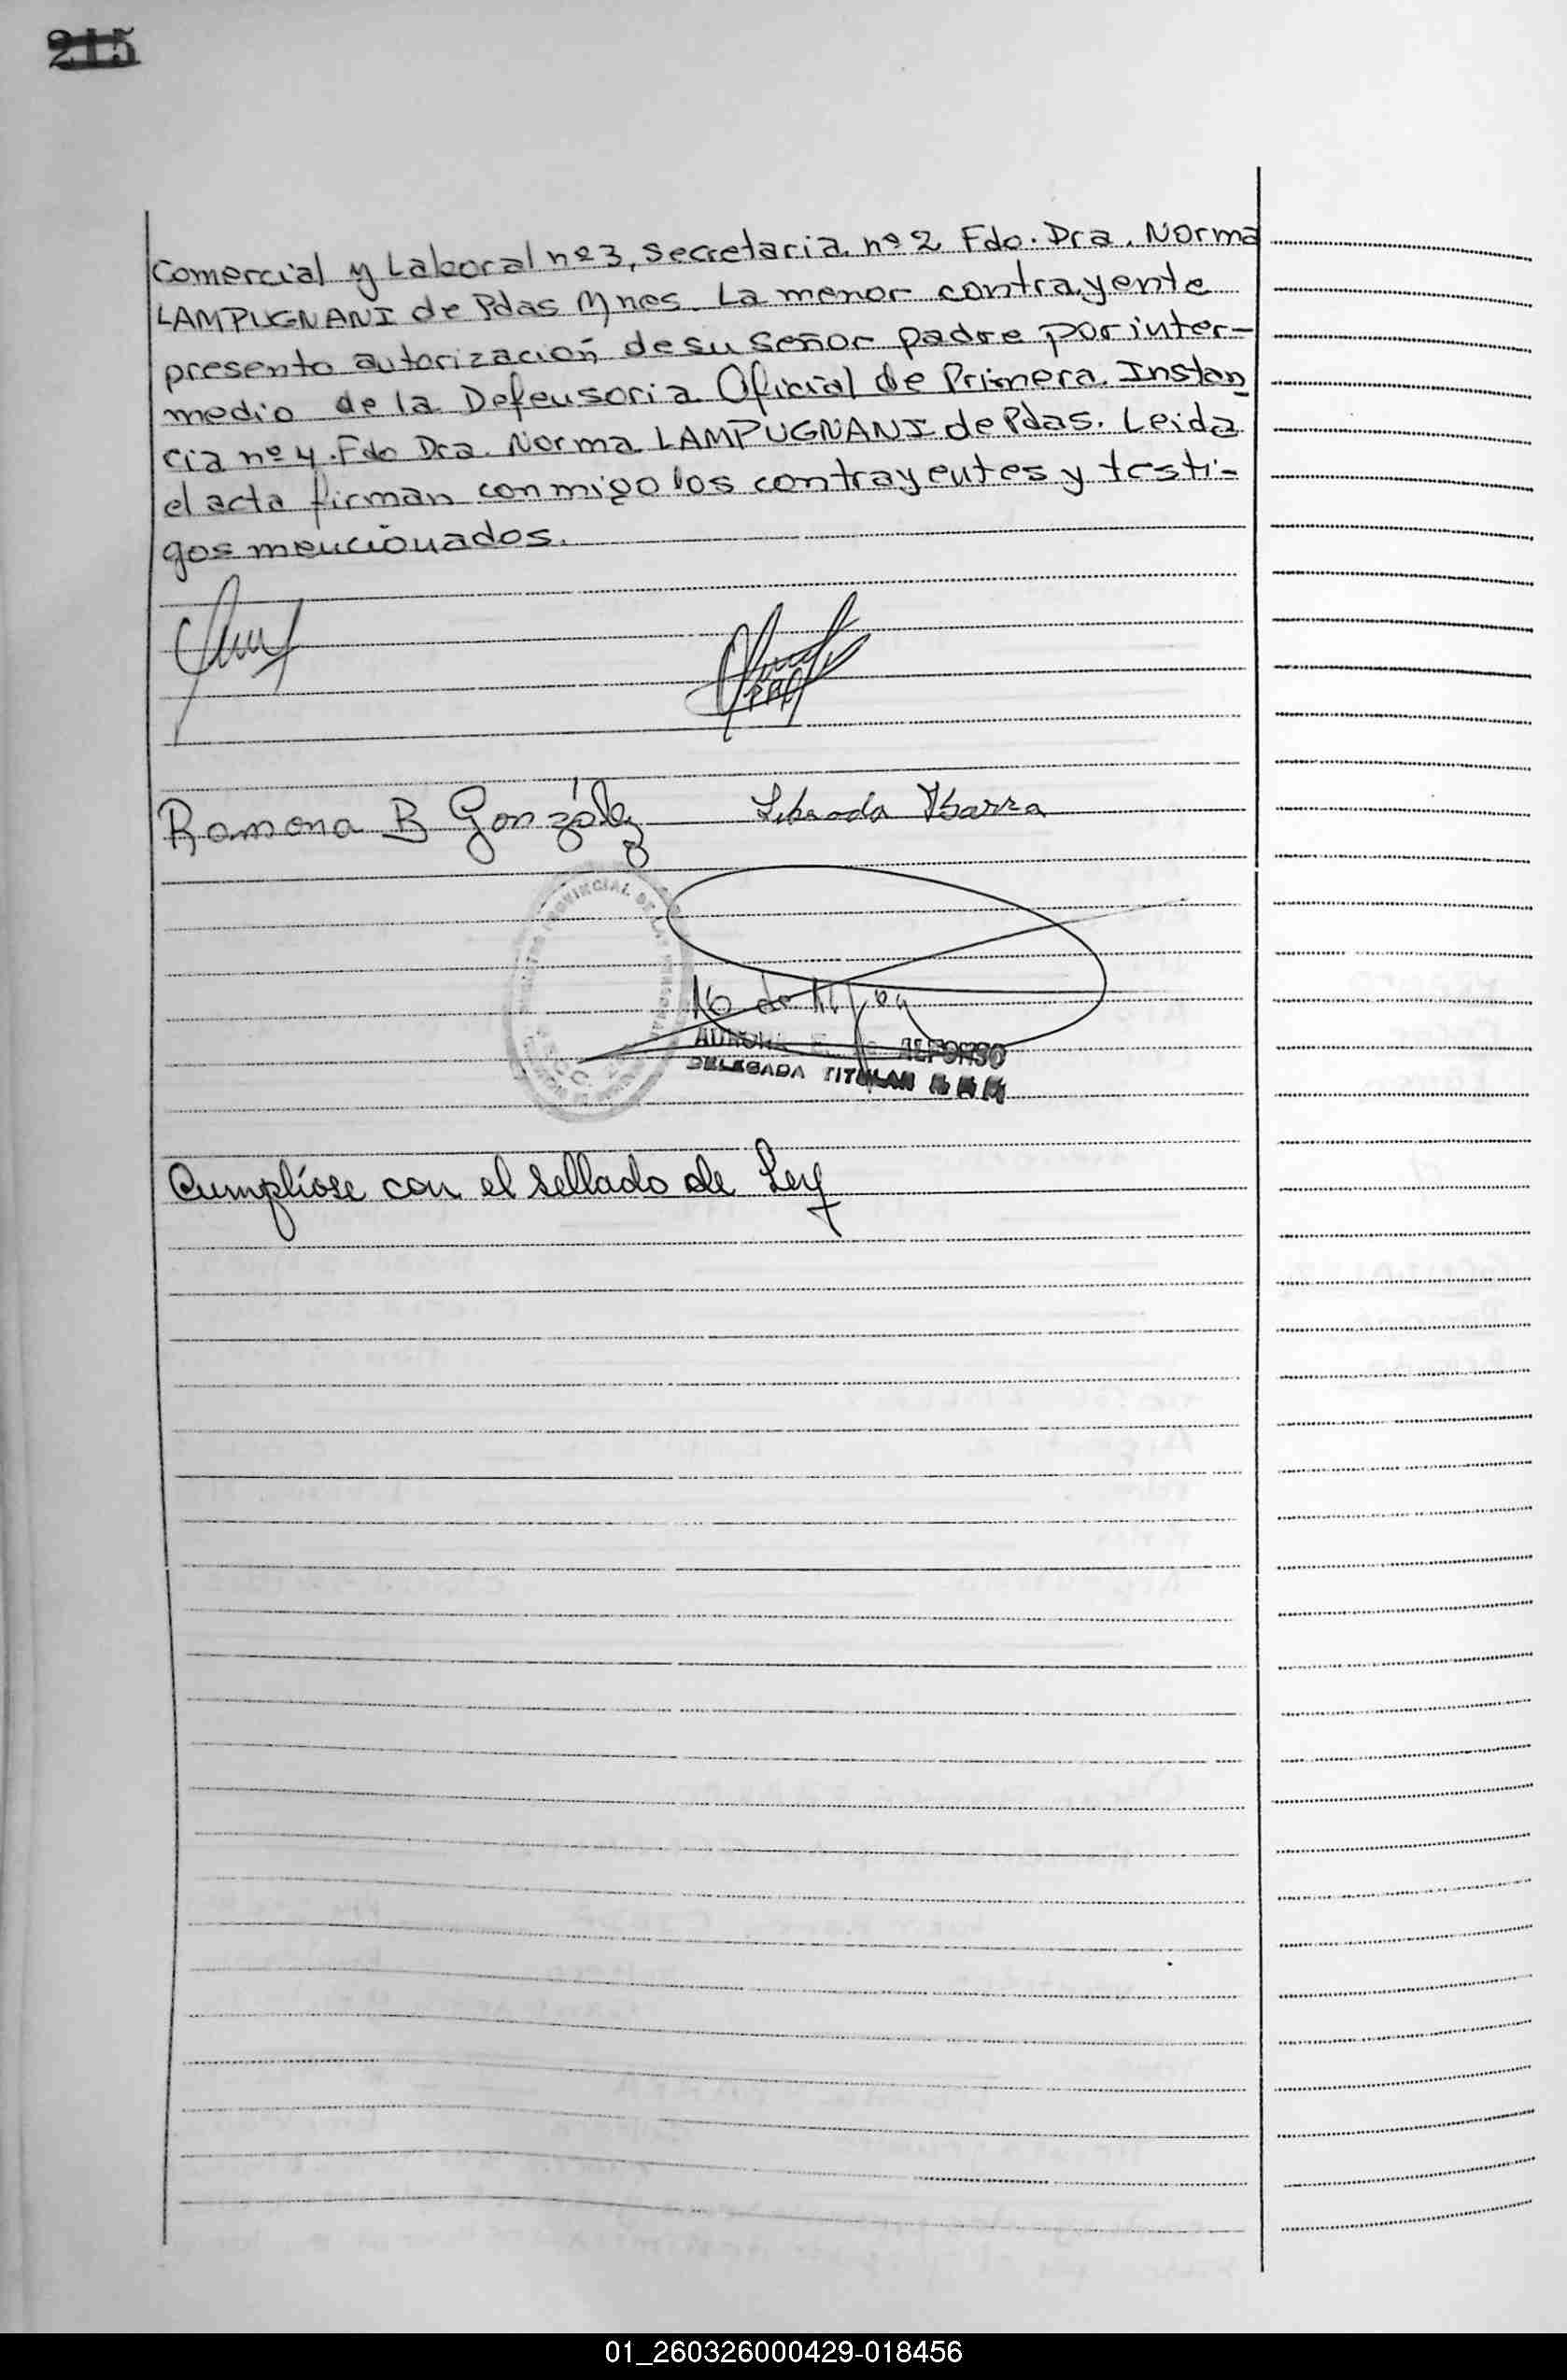 215
Comercial y Laboral nº3, Secretaria nº2 Fdo. Dra. Norma
LAMPUGNANI de Pdas Mnes. La menor contrayente
presento autorización de su Señor padre por inter-
medio de la Defensoria Oficial de Primera Instan
cia nº 4. Fdo Dra. Norma LAMPUGNANI de Pdas. Leida
el acta firman conmigo los contrayentes y testi-
gos mencionados.
Ramona B González Liberada Ybarra
ALFONSO
DELEGADA TITULAR
Cumplióse con el sellado de Ley
01_260326000429-018456